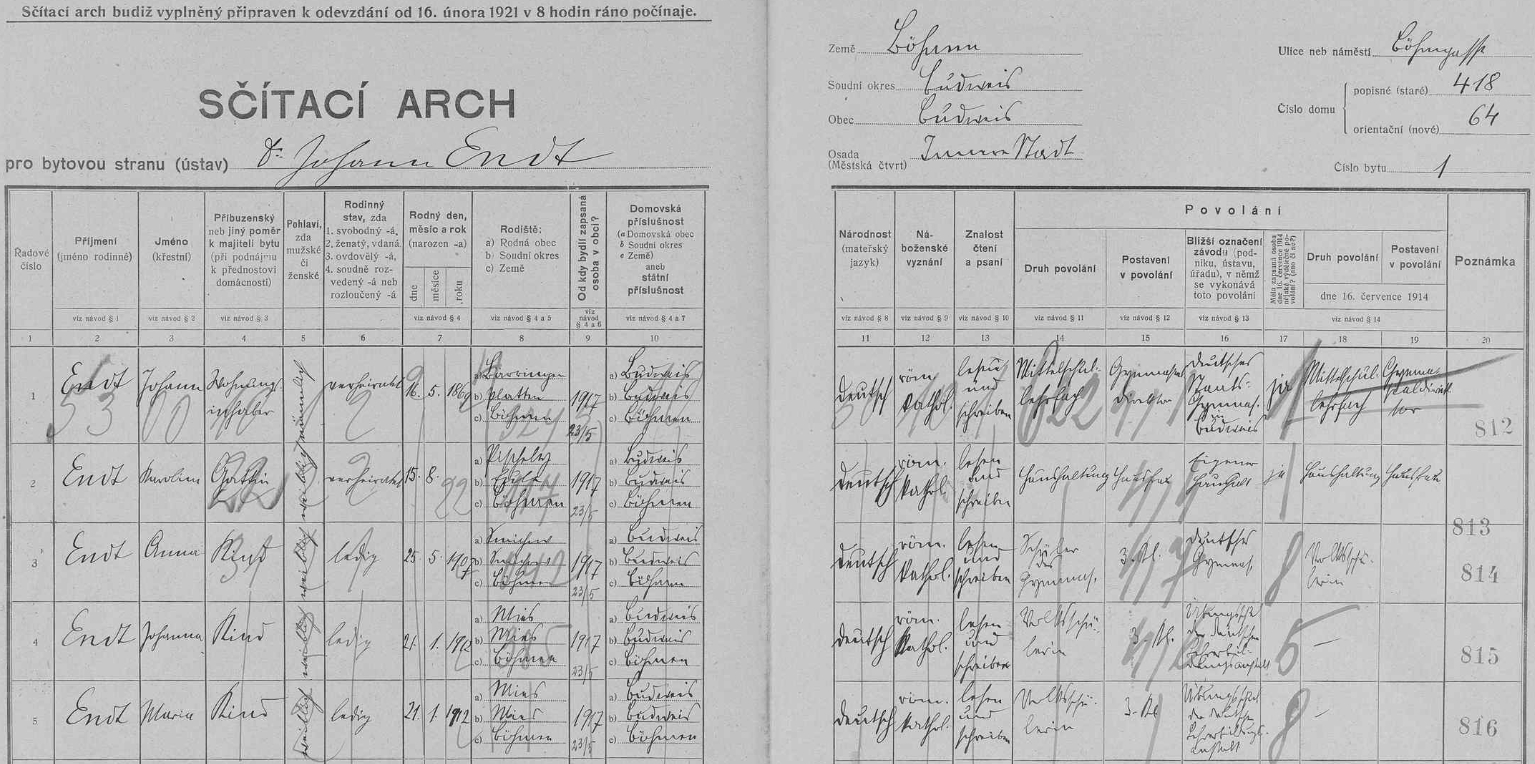 Sčítací arch budiž vyplněný připraven k odevzdání od 16. února 1921 v 8 hodin ráno počínaje.
SČÍTACÍ ARCH
pro bytovou stranu (ústav) Dr Johann Endt
Země Böhmen
Soudní okres Budweis
Obec Budweis
Osada (Městská čtvrť) Innere Stadt
Ulice neb náměstí Böhmgasse
Číslo domu
popisné (staré) 418
orientační (nové) 64
Číslo bytu 1
Řadové číslo
Příjmení (jméno rodinné)
Jméno (křestní)
Příbuzenský neb jiný poměr k majiteli bytu (při podnájmu k přednostovi domácnosti)
Pohlaví, zda mužské či ženské
Rodinný stav, zda
1. svobodný -á,
2. ženatý, vdaná,
3. ovdovělý -á,
4. soudně rozvedený -á neb rozloučený -á
Rodný den, měsíc a rok (narozen -a)
dne měsíce roku
Rodiště:
a) Rodná obec
b) Soudní okres
c) Země
Od kdy bydlí zapsaná osoba v obci?
Domovská příslušnost
(a Domovská obec
b Soudní okres
c Země)
aneb státní příslušnost
Národnost (mateřský jazyk)
Náboženské vyznání
Znalost čtení a psaní
Povolání
Druh povolání
Postavení v povolání
Bližší označení závodu (podniku, ústavu, úřadu), v němž se vykonává toto povolání
Druh povolání
Postavení v povolání
dne 16. července 1914
Poznámka
viz návod § 1 viz návod § 2 viz návod § 3 viz návod § 4 viz návod § 4 a 5 viz návod § 4 a 6 viz návod § 4 a 7
viz návod § 8 viz návod § 9 viz návod § 10 viz návod § 11 viz návod § 12 viz návod § 13 viz návod § 14
1 2 3 4 5 6 7 8 9 10
11 12 13 14 15 16 17 18 19 20
1 Endt Johann Wohnungsinhaber männlich verheiratet 16. 5. 1869
b) Platten
c) Böhmen
1917 23/5
a) Budweis
b) Budweis
c) Böhmen
deutsch röm. kathol. lesen und schreiben Mittelschullehrfach Gymnasialdirektor deutsches Staats-Gymnas. in Budweis ja Mittelschullehrfach Gymnasialdirektor
812
2 Endt Karolina Gattin weiblich verheiratet 15. 8.
c) Böhmen
1917 23/5
a) Budweis
b) Budweis
c) Böhmen
deutsch röm. kathol. lesen und schreiben Haushaltung Hausfrau Eigener Haushalt ja Haushaltung Hausfrau
813
3 Endt Anna Kind weiblich ledig 25 5 1907
a) Smichow
b) Smichow
c) Böhmen
1917 23/5
a) Budweis
b) Budweis
c) Böhmen
deutsch röm. kathol. lesen und schreiben 3. Kl. deutsches Gymnas. Volksschülerin
814
4 Endt Johanna Kind weiblich ledig 21. 1. 1912
a) Mies
b) Mies
c) Böhmen
1917 23/5
a) Budweis
b) Budweis
c) Böhmen
deutsch röm. kathol. lesen und schreiben Volksschülerin 3. Kl. Übungsschule der deutschen Lehrerbildungsanstalt –
815
5 Endt Maria Kind weiblich ledig 21 1 1912
a) Mies
b) Mies
c) Böhmen
1917 23/5
a) Budweis
b) Budweis
c) Böhmen
deutsch röm. kathol. lesen und schreiben Volksschülerin 3. Kl Übungsschule der deutschen Lehrerbildungsanstalt –
816